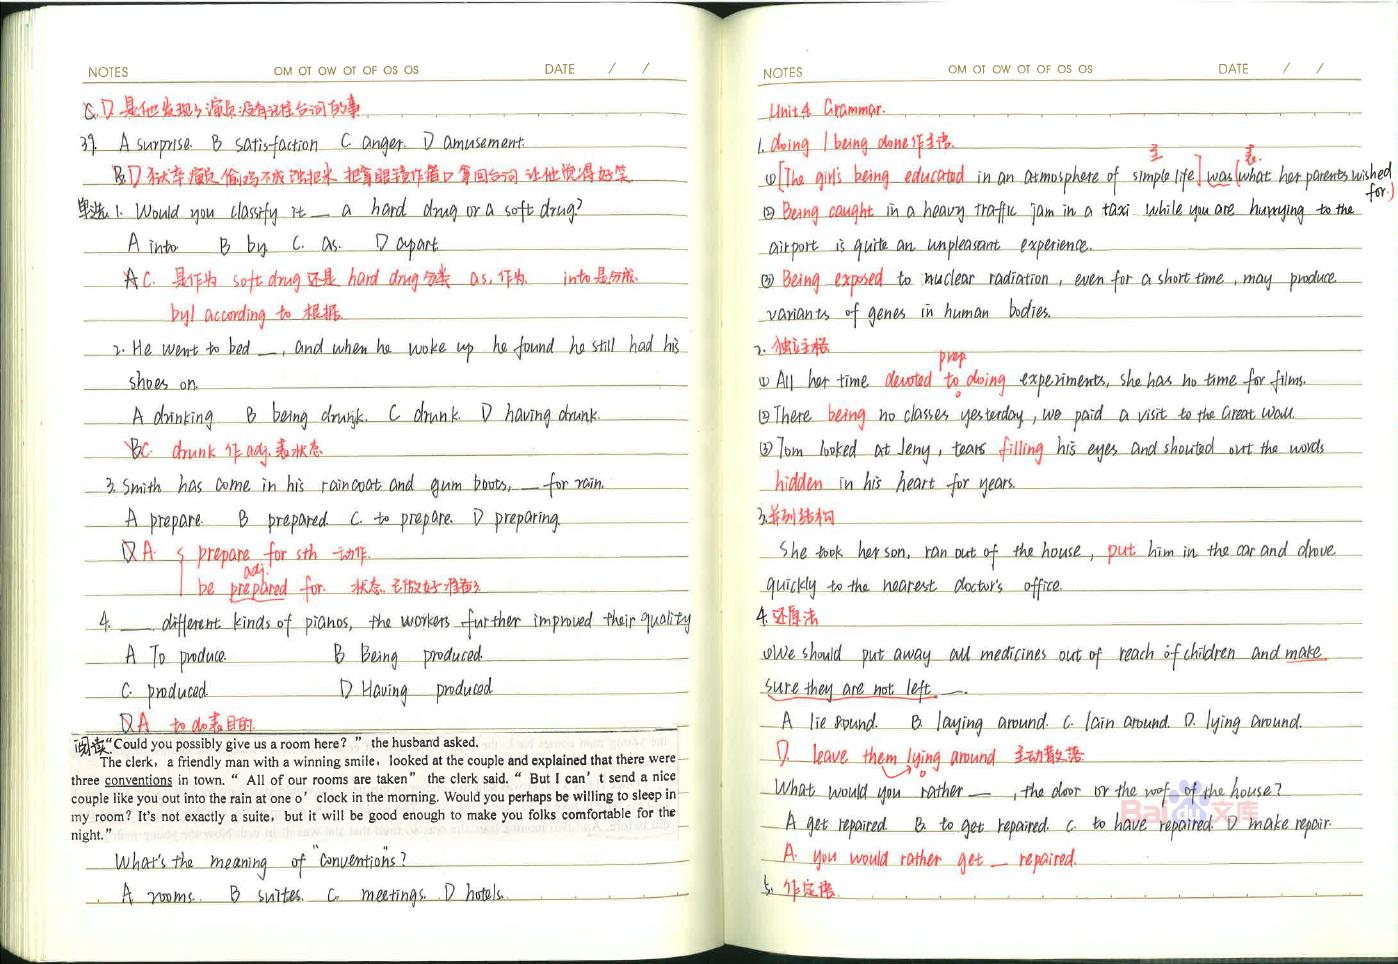 NOTES OM OT OW OT OF OS OS DATE / /
C.D 是他发现了演员没有记住台词的事
39. A surprise. B satisfaction C. anger. D amusement.
B.D 狱卒演员偷鸡不成蚀把米 把拿眼镜作借口拿回台词 让他觉得好笑
单选 1. Would you classify it __ a hard drug or a soft drug?
A into B by C. as. D apart.
A C. 是作为 soft drug 还是 hard drug 分类 as, 作为 into 是分成
by| according to 根据
2. He went to bed __, and when he woke up he found he still had his
shoes on.
A drinking B being drunk. C drunk. D having drunk.
BC. drunk 作 adj. 表状态
3. Smith has come in his raincoat and gum boots, __ for rain.
A prepare. B prepared. C. to prepare. D preparing.
D A. prepare for sth 动作.
adj.
be prepared for. 状态 已做好准备了
4. __ different kinds of pianos, the workers further improved their quality
A To produce. B Being produced.
C. produced. D Having produced
D A to do 表目的.
阅读: “Could you possibly give us a room here? ” the husband asked.
The clerk, a friendly man with a winning smile, looked at the couple and explained that there were
three conventions in town. “ All of our rooms are taken” the clerk said. “ But I can’ t send a nice
couple like you out into the rain at one o’ clock in the morning. Would you perhaps be willing to sleep in
my room? It's not exactly a suite, but it will be good enough to make you folks comfortable for the
night.”
What's the meaning of "conventions"?
A rooms. B suites. C. meetings. D hotels.
NOTES OM OT OW OT OF OS OS DATE / /
Unit 4 Grammar.
1. doing / being done 作主语.
主 表.
① [The girl's being educated in an atmosphere of simple life] was (what her parents wished
for.)
② Being caught in a heavy traffic jam in a taxi while you are hurrying to the
airport is quite an unpleasant experience.
③ Being exposed to nuclear radiation, even for a short time, may produce
variants of genes in human bodies.
2. 独立主格
prep
① All her time devoted to doing experiments, she has no time for films.
② There being no classes yesterday, we paid a visit to the Great Wall.
③ Tom looked at Jeny, tears filling his eyes and shouted out the words
hidden in his heart for years.
3. 并列结构
She took her son, ran out of the house, put him in the car and drove
quickly to the nearest doctor's office.
4. 还原法
① We should put away all medicines out of reach of children and make
sure they are not left __.
A lie around. B. laying around. C. lain around. D. lying around.
D. leave them lying around 主动散落
What would you rather __, the door or the roof of the house?
A get repaired. B. to get repaired. C. to have repaired. D make repair.
A. you would rather get __ repaired.
5. 作定语.
Bai 文库